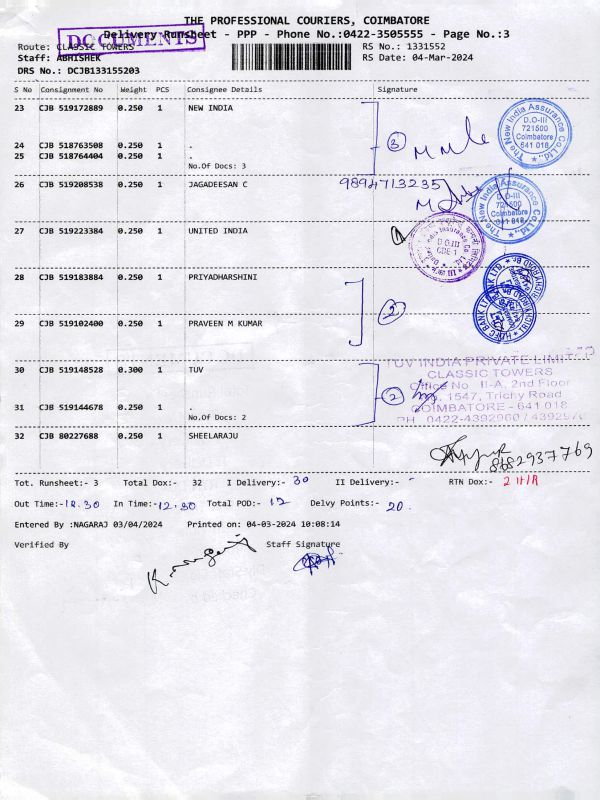 THE PROFESSIONAL COURIERS, COIMBATORE
Delivery Runsheet - PPP - Phone No.:0422-3505555 - Page No.:3
DOCUMENTS
Route: CLASSIC TOWERS
RS No.: 1331552
Staff: ABHISHEK
RS Date: 04-Mar-2024
DRS No.: DCJB133155203
S No Consignment No Weight PCS Consignee Details Signature
23 CJB 519172889 0.250 1 NEW INDIA
24 CJB 518763508 0.250 1 .
25 CJB 518764404 0.250 1 .
No.Of Docs: 3
3
The New India Assurance Co. Ltd.
D.O-III
721500
Coimbatore
641 018
26 CJB 519208538 0.250 1 JAGADEESAN C
9894713235
The New India Assurance Co. Ltd.
D.O-III
721500
Coimbatore
641 018
27 CJB 519223384 0.250 1 UNITED INDIA
D.O.III
CBE-1
28 CJB 519183884 0.250 1 PRIYADHARSHINI
2
HDFC BANK LTD.
29 CJB 519102400 0.250 1 PRAVEEN M KUMAR
30 CJB 519148528 0.300 1 TUV
31 CJB 519144678 0.250 1 .
No.Of Docs: 2
2
TUV INDIA PRIVATE LIMITED
CLASSIC TOWERS
Office No II-A, 2nd Floor
No. 1547, Trichy Road
COIMBATORE - 641 018
PH 0422-4392960 /
32 CJB 80227688 0.250 1 SHEELARAJU
8682937769
Tot. Runsheet:- 3 Total Dox:- 32 I Delivery:- 30 II Delivery:- - RTN Dox:- 2
Out Time:- In Time:-12.30 Total POD:- 12 Delvy Points:- 20.
Entered By :NAGARAJ 03/04/2024 Printed on: 04-03-2024 10:08:14
Verified By Staff Signature